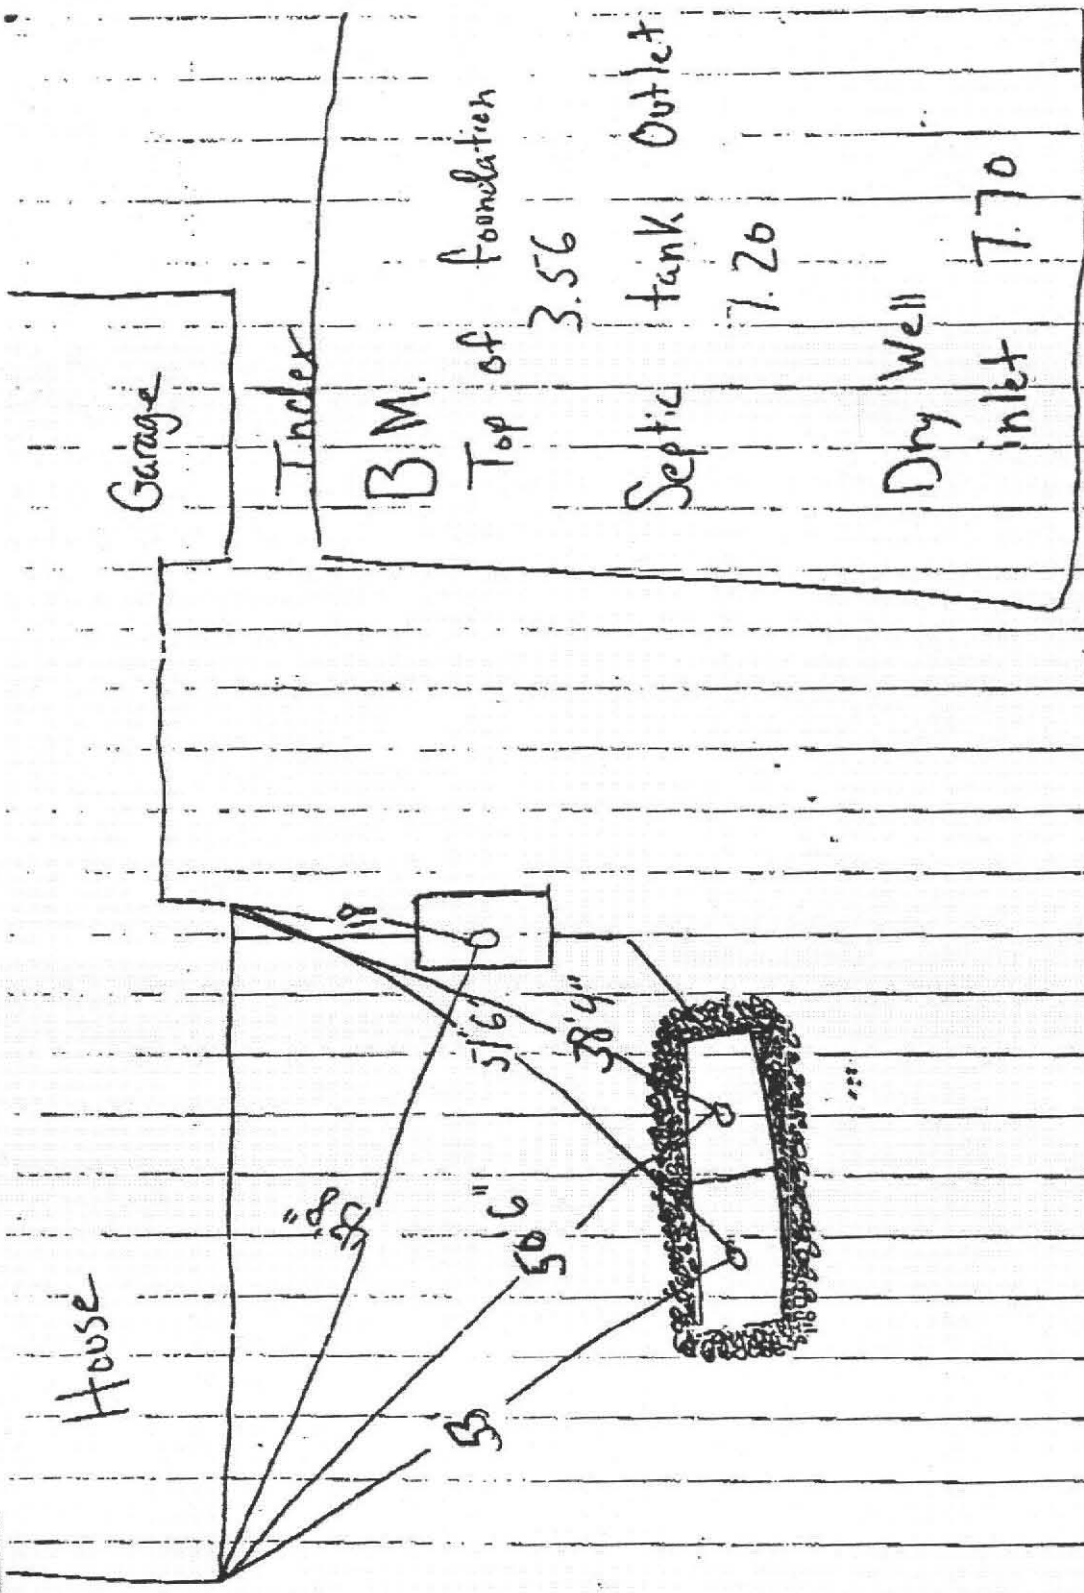 House
Garage
Index
B M.
Top of foundation
3.56
Septic tank Outlet
7.20
Dry Well
inlet 7.70
18
51'6"
38'4"
50'6"